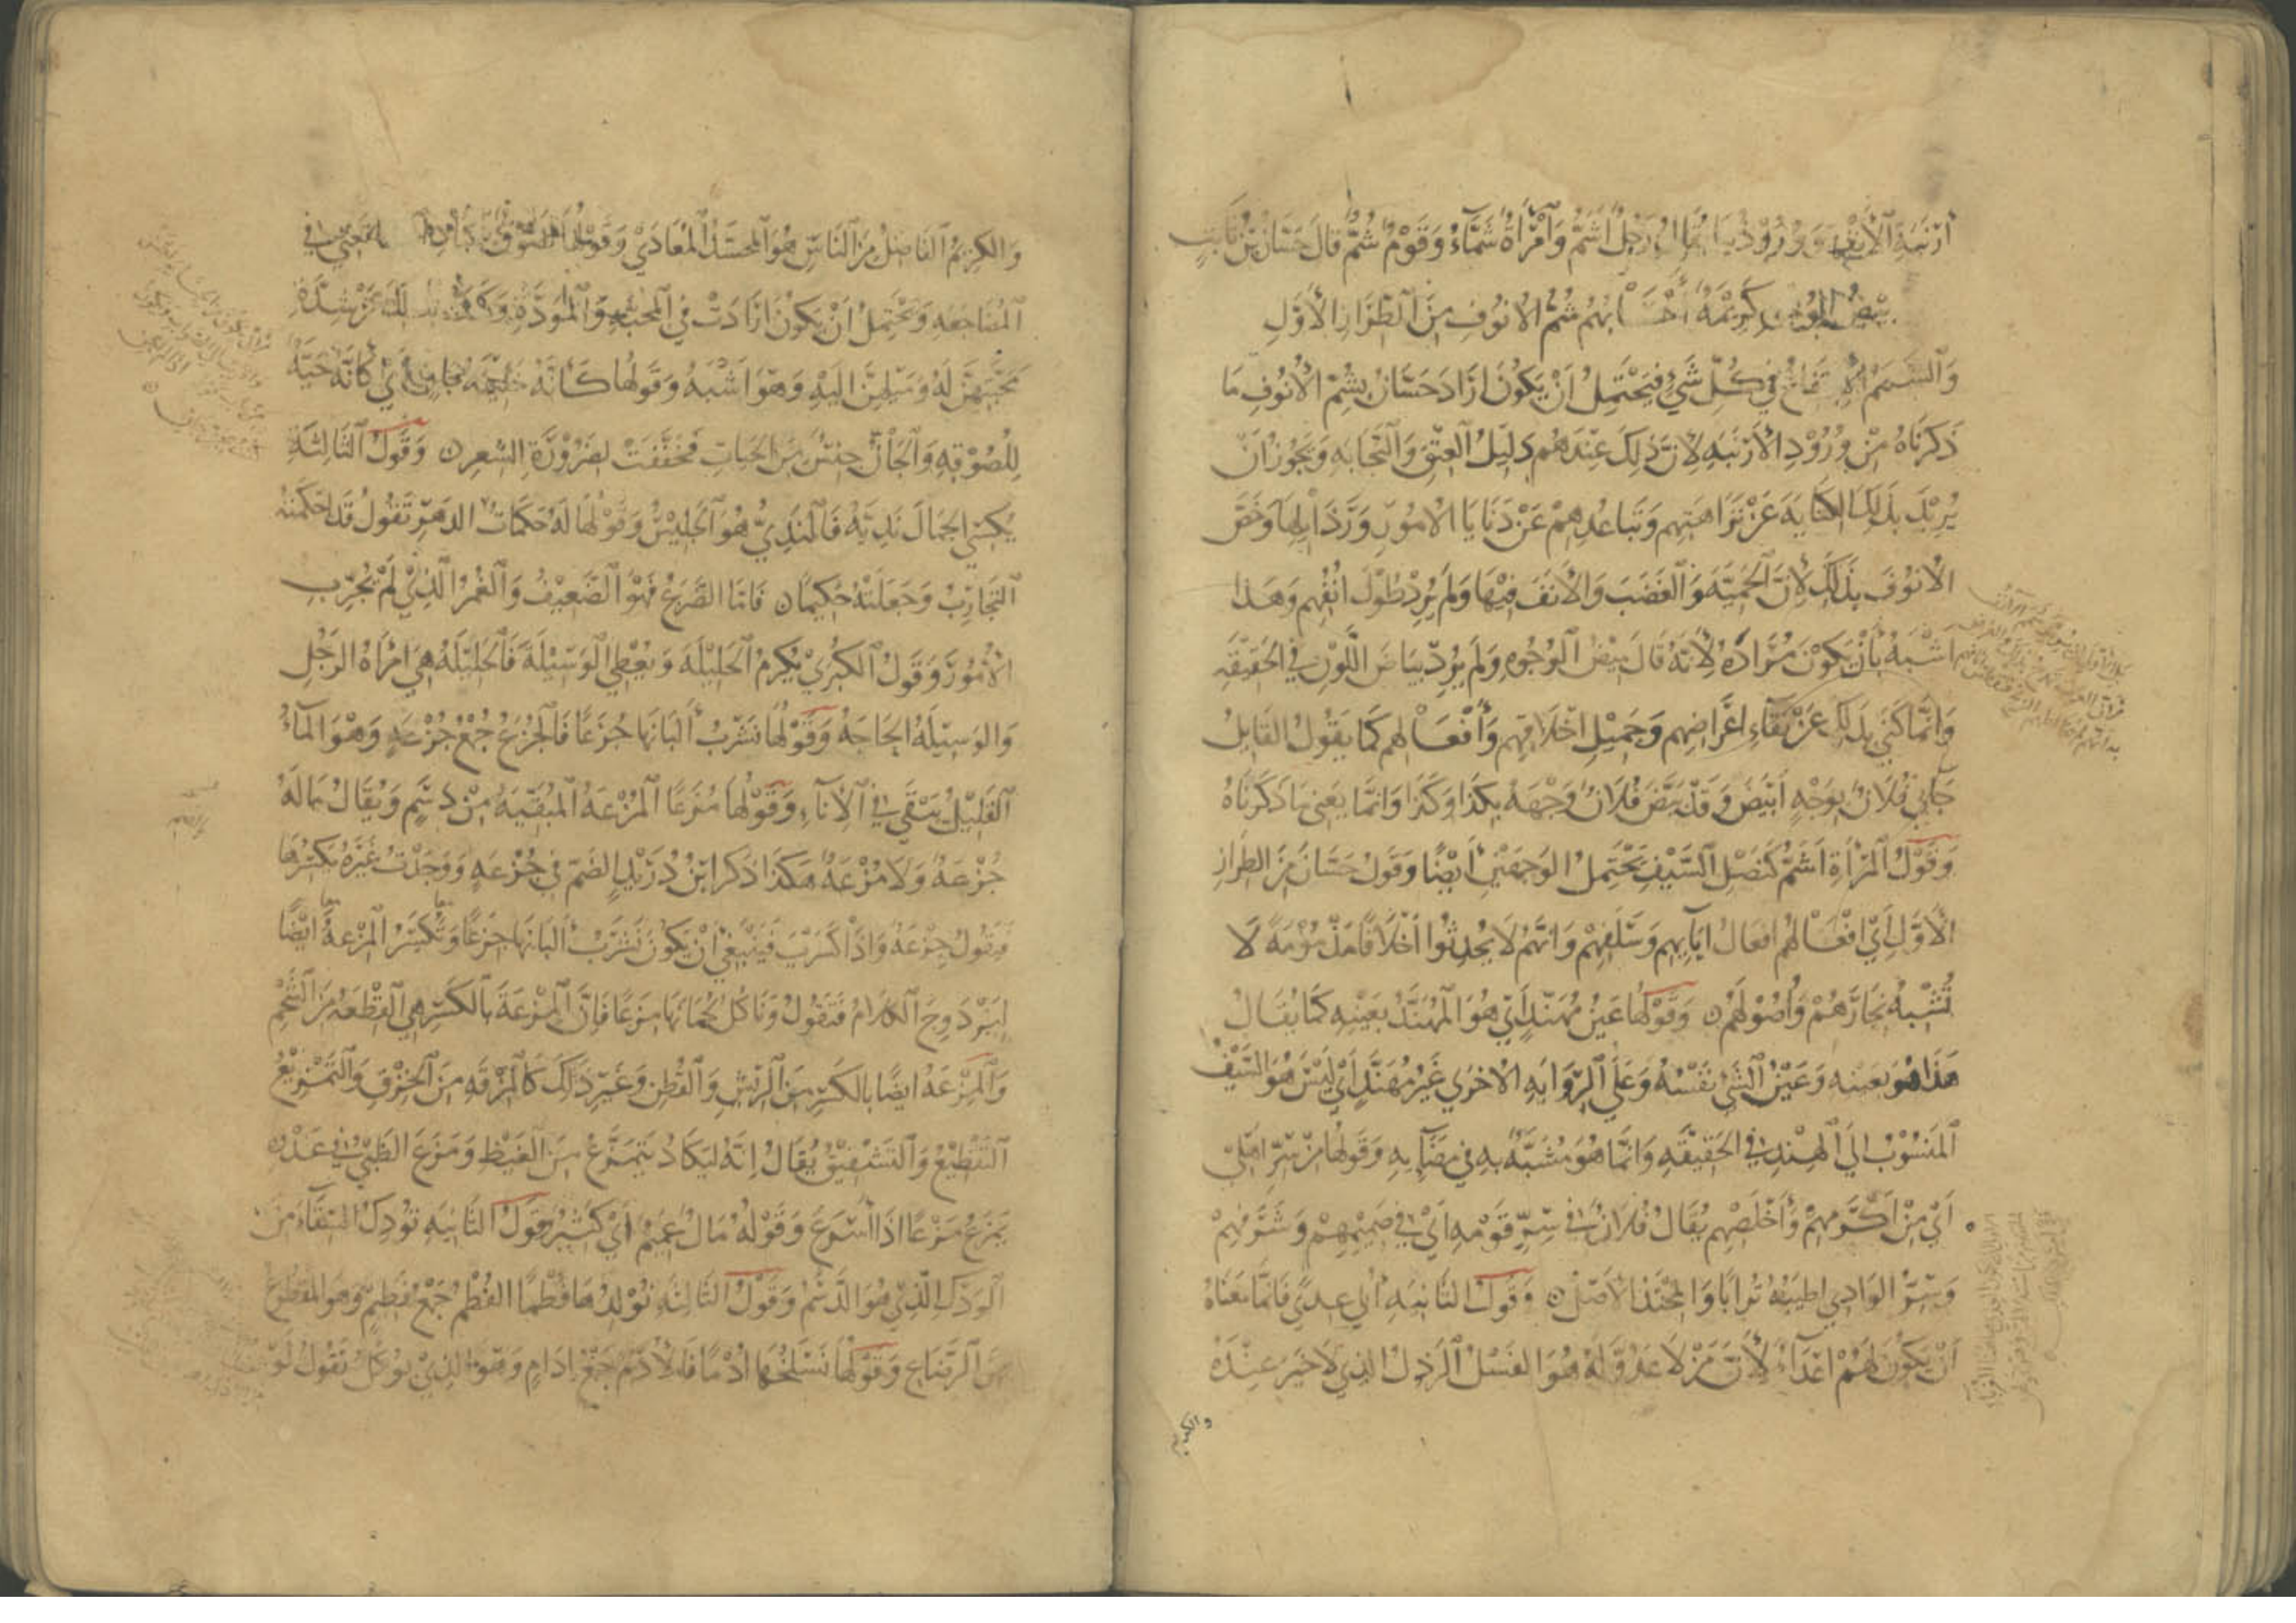 أرنبة الأنف وورود يقال رجل أشم وامرأة شماء وقوم شم قال حسان بن ثابت
بيض الوجوه كريمة أحسابهم شم الانوف من الطراز الأول
والشمم الارتفاع في كل شيء فيحتمل أن يكون أراد حسان بشم الأنوف ما
ذكرناه من ورود الأرنبة لأن ذلك عندهم دليل العتق والنجابة ويجوز أن
يريد بذلك الكناية عن نزاهتهم وتباعدهم عن دنايا الامور ورذايلها وخص
الانوف بذلك لأن الحمية والغضب والأنف فيها ولم يرد طول أنفهم وهذا
أشبه بأن يكون مراده لأنه قال بيض الوجوه ولم يرد بياض اللون في الحقيقه
وانما كنى بذلك عن نقاء اعراضهم وجميل اخلاقهم وأفعالهم كما يقول القايل
جاني فلان بوجه أبيض وقد بيض فلان وجهه بكذا وكذا وانما يعنى ما ذكرناه
وقول المرأة أشم كنصل السيف يحتمل الوجهين أيضا وقول حسان من الطراز
الأول أي افعالهم افعال آبايهم وسلفهم وانهم لا يحدثوا أخلاقا مذمومة لا
تشبه نجارهم وأصولهم وقولها عين مهند أي هو المهند بعينه كما يقال
هذا هو بعينه وعين الشي نفسه وعلى الروايه الاخرى غير مهند أي ليس هو السيف
المنسوب الى الهند في الحقيقه وانما هو مشبه به في مضايه وقولها من سر اهلى
أي من أكرمهم وأخلصهم يقال فلان في سر قومه أي في صميمهم وشرفهم
وسر الوادي اطيبه ترابا والمحتد الأصل وقول الثانيه أولي عدي فانما معناه
أن يكون لهم أعداء لأن من لا عدو له هو الفسل الرذل الذي لا خير عنده
والكريم
والكريم الفاضل من الناس هو المحسد المعادى وقولها
المضاجعه ويحتمل أن يكون أرادت في المحبة والمودة وكنت بذلك عن شدة
محبتهن له وميلهن اليه وهو أشبه وقولها كأنه خليفة جان أي كأنه حية
للصوقه والجان جنس من الحيات فخففت لضرورة الشعر وقول الثالثة
يكسى الجمال نديه فالندي هو الجليس وقولها له حكمات الدهر تقول قد احكمته
التجارب وجعلته حكيما فاما الضرع فهو الضعيف والغمر الذي لم يجرب
الأمور وقول الكبرى يكرم الحليلة ويعطي الوسيلة فالحليلة هي امرأة الرجل
والوسيلة الحاجة وقولها نشرب ألبانها جزعا فالجزع جمع جزعة وهو الماء
القليل يبقى في الأناء وقولها مزعا المزعة البقية من دسم ويقال ماله
جزعة ولا مزعة هكذا ذكر ابن دريد الضم في جزعة ووجدت غيره يكسرها
فيقول جزعة واذا كسرت فينبغي أن يكون نشرب ألبانها جزعا وتكسر المزعة أيضا
ليزدوج الكلام فتقول وناكل لحمانها مزعا فإن المزعة بالكسر هي القطعة من الشحم
والمزعة ايضا بالكسر من الريش والقطن وغير ذلك كالمزقة من الخرق والتمزيع
التقطيع والتشقيق يقال إنه ليكاد يتمزع من الغيظ ومزع الظبي في عدوه
يمزع مزعا اذا أسرع وقوله مال عميم أي كثير وقول الثانيه تودك السقاء من
الودك الذي هو الدسم وقول الثالثة نولدها فطما الفطم جمع فطيم وهو المقطوع
من الرضاع وقولها نسلخها أدما فالأدم جمع إدام وهو الذي يوكل تقول لو